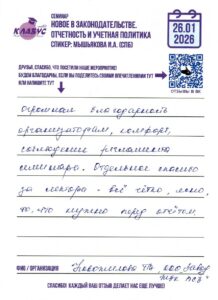 КЛАВУС
СЕМИНАР
НОВОЕ В ЗАКОНОДАТЕЛЬСТВЕ.
ОТЧЕТНОСТЬ И УЧЕТНАЯ ПОЛИТИКА
СПИКЕР: МЫШЬЯКОВА И.А. (СПБ)
26.01
2026
ДРУЗЬЯ, СПАСИБО, ЧТО ПОСЕТИЛИ НАШЕ МЕРОПРИЯТИЕ!
БУДЕМ БЛАГОДАРНЫ, ЕСЛИ ВЫ ПОДЕЛИТЕСЬ СВОИМИ ВПЕЧАТЛЕНИЯМИ ТУТ
ИЛИ НАПИШИТЕ ТУТ
ОТЗЫВЫ В ВК
Огромная благодарность
организаторам, комфорт,
соблюдение регламента
семинара. Отдельное спасибо
за лектора - всё чётко, ясно,
то, что нужно перед отчётом.
ФИО / ОРГАНИЗАЦИЯ
ООО "Завод
СПАСИБО! КАЖДЫЙ ВАШ ОТЗЫВ ДЕЛАЕТ НАС ЕЩЕ ЛУЧШЕ!